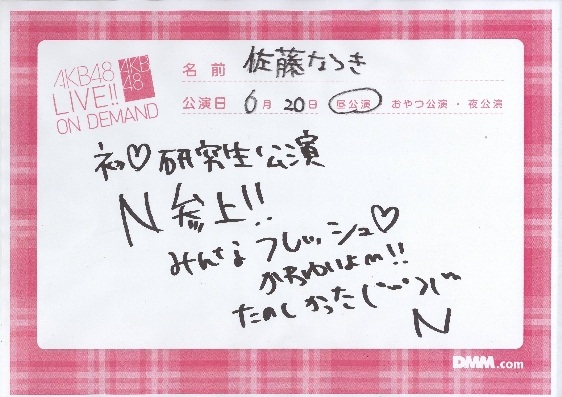 AKB48
LIVE!!
ON DEMAND
AKB
48
名前 佐藤なつき
公演日 6月20日 昼公演 おやつ公演・夜公演
初♡研究生公演
N参上!!
みんなフレッシュ♡
かわゆいよm!!
たのしかった(
N
DMM.com